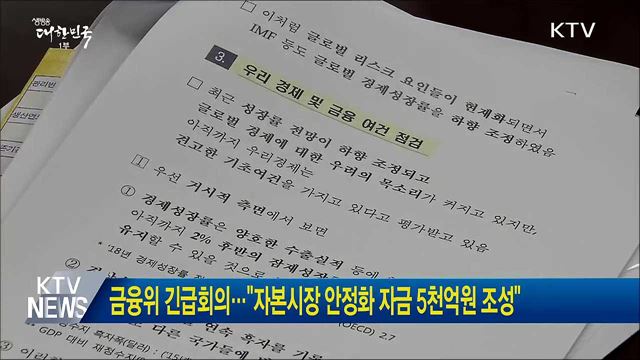 생방송
대한민국
1부
KTV
□ 이처럼 글로벌 리스크 요인들이 현재화되면서
IMF 등도 글로벌 경제성장률을 하향 조정하였음
3. 우리 경제 및 금융 여건 점검
□ 최근 성장률 전망이 하향 조정되고
글로벌 경제에 대한 우려의 목소리가 커지고 있지만,
아직까지 우리경제는
견고한 기초여건을 가지고 있다고 평가받고 있음
□ 우선 거시적 측면에서 보면
① 경제성장률은 양호한 수출실적 등에
아직까지 2% 후반의 잠재성장
유지할 수 있을 것으로
* '18년 경제성장률
(OECD) 2.7
②
KTV
NEWS
금융위 긴급회의…"자본시장 안정화 자금 5천억원 조성"
흑자를 기록
GDP 대비 재정수지
다른 국가들에
③